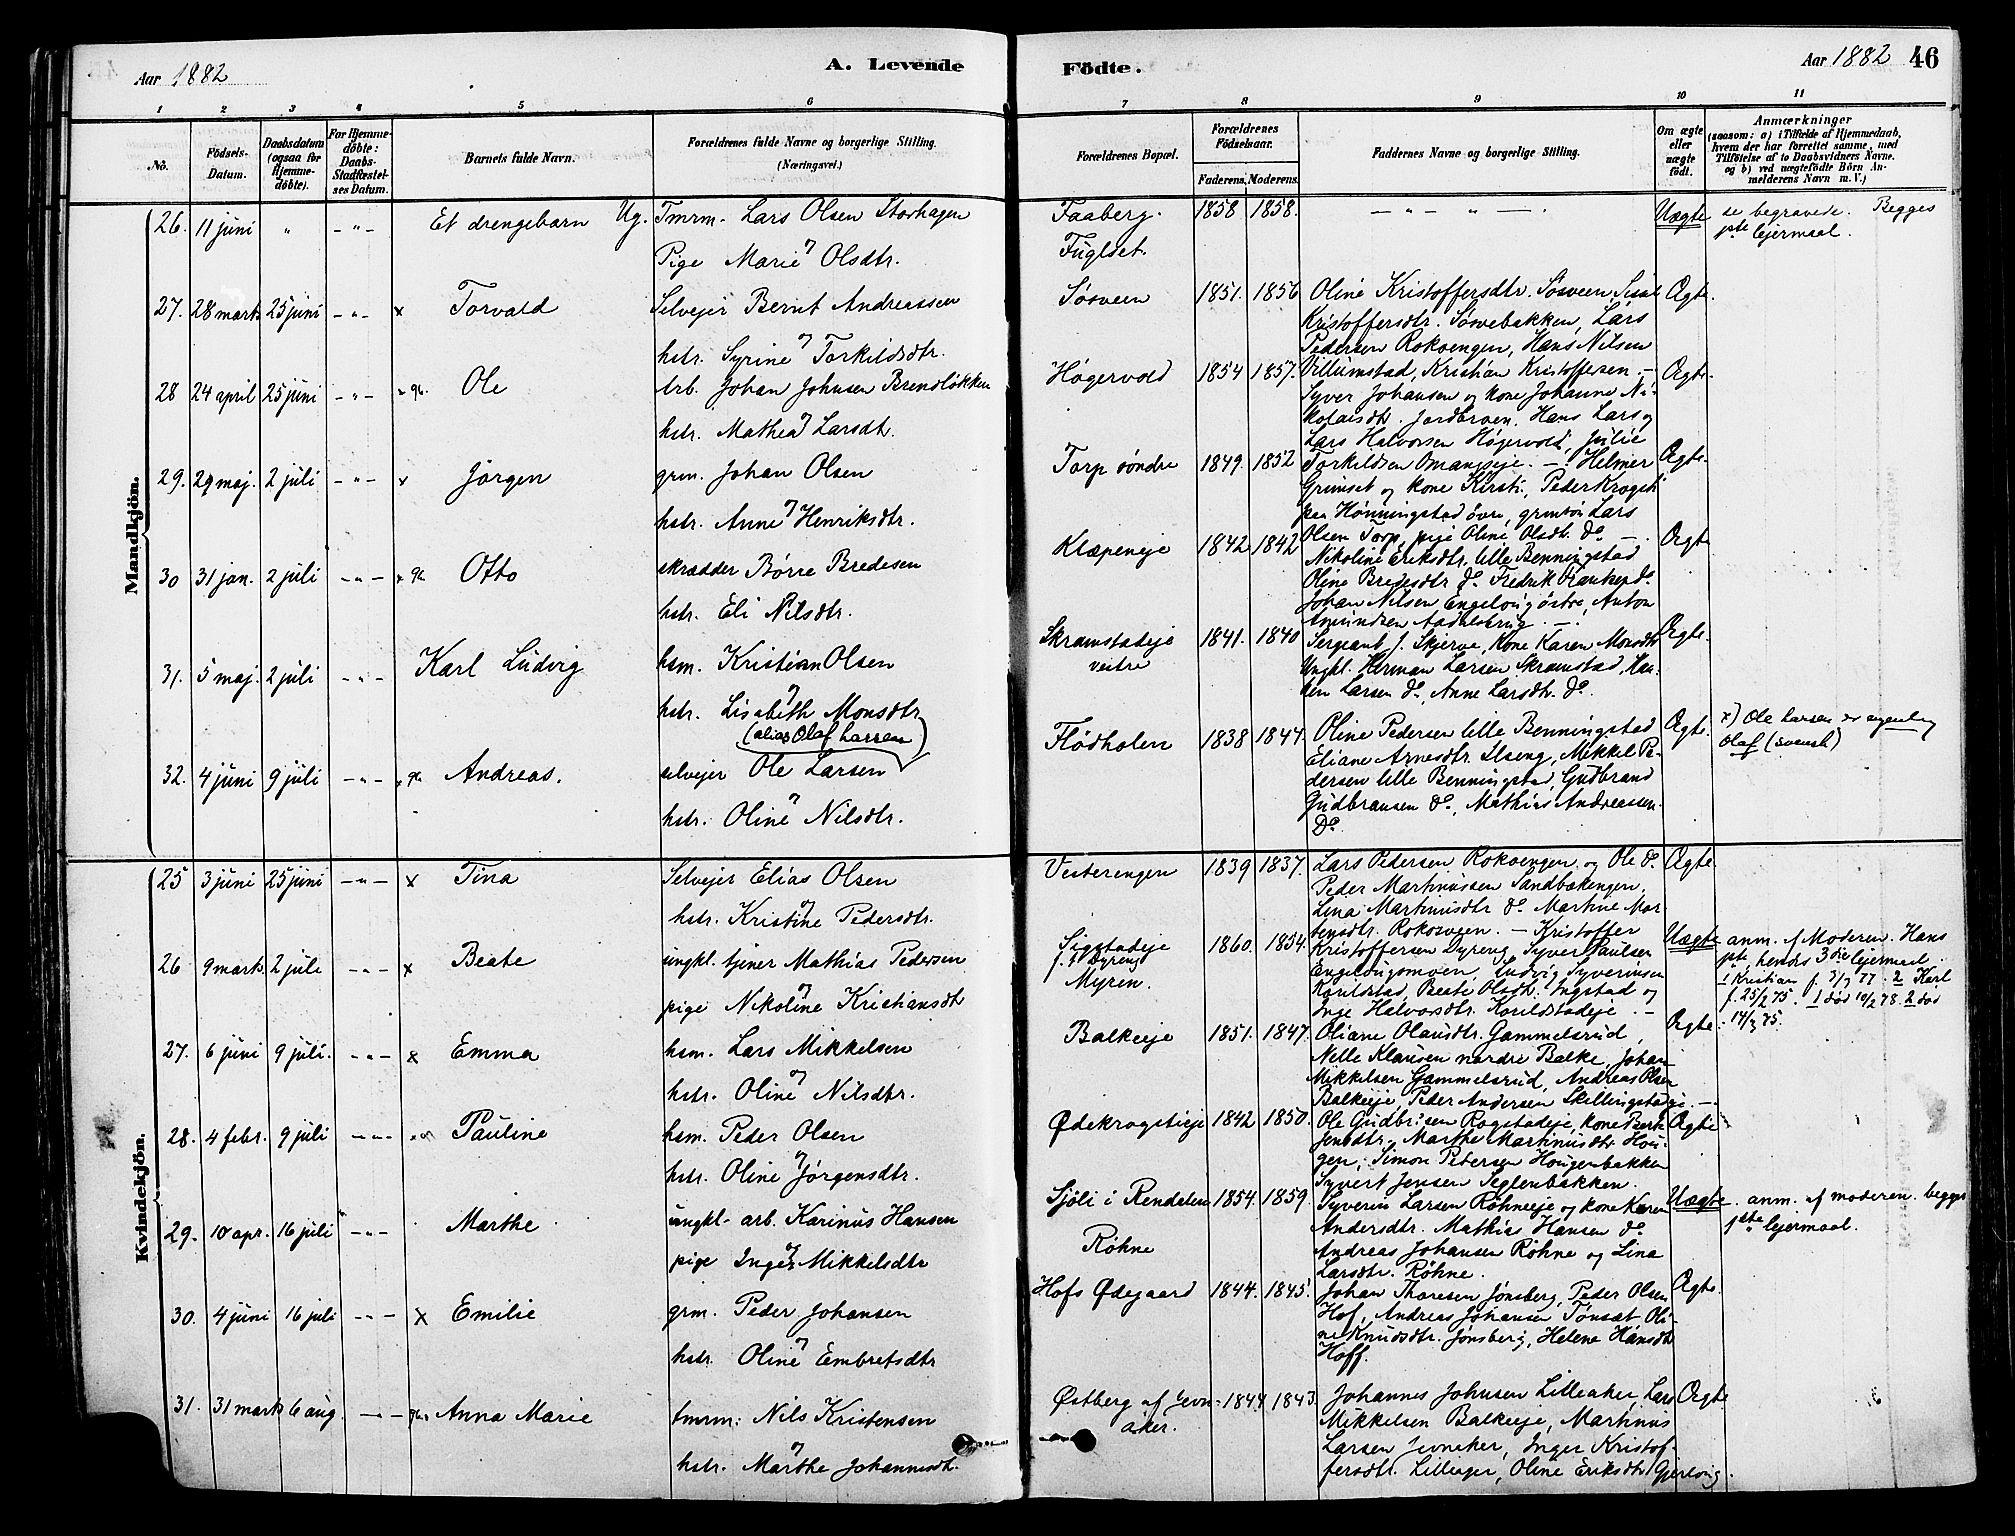 Aar 1882
A. Levende Födte.
Aar 1882 46
1 2 3 4 5 6 7 8 9 10 11
No.
Födsels-Datum.
Daabsdatum (ogsaa for Hjemmedöbte).
For Hjemmedöbte: Daabs-Stadfæstelses Datum.
Barnets fulde Navn.
Forældrenes fulde Navne og borgerlige Stilling. (Næringsvei.)
Forældrenes Bopæl.
Forældrenes Födselsaar. Faderens. Moderens.
Faddernes Navne og borgerlige Stilling.
Om ægte eller uægte födt.
Anmærkninger (saasom: a) i Tilfælde af Hjemmedaab, hvem der har forrettet samme, med Tilföielse af to Daabsvidners Navne. og b) ved uægtefödte Börn Anmelderens Navn m. V.)
Mandkjön.
26. 11 juni " - " - Et drengebarn Ug. Tmrm. Lars Olsen Storhagen Faaberg. 1858 1858. - " - " - Uægte se begravede. Begges
Pige Marie Olsdtr. Fuglset. pte lejermaal.
27. 28 marts 25 juni - " - x Torvald Selvejer Bernt Andreassen Søsveen 1851. 1856 Oline Kristoffersdtr. Søsveen, Ægte.
hstr. Syrine Torkildsdtr. Kristoffersdtr. Søsvebakken, Lars
Pedersen Rokoengen, Hans Nilsen
28 24 april 25 juni - " - Ole Arb. Johan Johnsen Brendløkken Høgervold 1854 1857. Villumstad, Kristian Kristoffersen. - Ægte.
hstr. Mathea Larsdt. Syver Johansen og kone Johanne Ni-
kolaisdt. Jordbroen. Hans Lars og
Lars Halvorsen Høgervold, Julie
29. 29 maj. 2 juli - " - x Jørgen grm. Johan Olsen Torp søndre 1849. 1852 Torkildsen Omangseje. - Helmer Ægte.
hstr. Anne Henriksdtr. Grimset og kone Kirsti, Peder Krogsti
paa Hønningstad øvre, Lars
30 31 jan. 2 juli - " - Otto skrædder Børre Bredesen Klæpeneje 1842 1842 Olsen Torp, pige Oline Olsdt. Do - Ægte
hstr. Eli Nilsdtr. Nikoline Eriksdtr. lille Benningstad
Oline Bredesdtr Do Fredrik Do
Johan Nilsen Engelaug østre, Anton
Amundsen
31. 5 maj. 2 juli - " - Karl Ludvig hsm. Kristian Olsen Skramstadeje vestre 1841. 1840 Sergeant J. Skjerve, kone Karen Monsdtr Ægte.
hstr. Lisabeth Monsdtr Ungkl. Herman Larsen Skramstad, Haa-
ken Larsen Do, Anne Larsdt. Do.
(alias Olaf Larsen)
32. 4 juni 9 juli - " - Andreas. selvejer Ole Larsen Flødholen 1838 1844. Oline Pedersen lille Benningstad Ægte. x) Ole Larsen er egentlig
hstr. Oline Nilsdtr. Eliane Arnesdtr Ilseng, Mikkel Pe- Olaf (svensk)
dersen lille Benningstad, Gudbrand
Gudbransen Do, Mathias Andreassen.
Do.
Kvindekjön.
25 3 juni 25 juni - " - x Tina Selvejer Elias Olsen Vesterengen 1839 1837. Lars Pedersen Rokoengen og Ole Do Ægte
hstr. Kristine Pedersdtr. Peder Martinussen Sandbækengen,
Lina Martinusdtr Do Martine Mor-
tensdtr. Rokoengen. - Kristoffer
26 9 marts. 2 juli - " - x Beate ungkl. tjener Mathias Pedersen Sigstadeje 1860. 1854. Kristoffersen Dyreng, Syver Paulsen Uægte anm. af Moderen. Hans
pige Nikoline Kristiansdt f. t. Dyreng Myren. Engelaugsmoen, Ludvig Syverinsen pte, hendes 3die lejermaal
Karildstad, Beate Olsdt. Ingstad og 1 Kristian f. 3/9 77. 2 Karl
Inge Halvorsdtr. Karildstadeje. - f. 25/2 75. 1 død 10/2 78. 2 død
14/3 75.
27. 6 juni 9 juli. - " - x Emma hsm. Lars Mikkelsen Balkeeje 1851. 1847. Oliane Olausdtr. Gammelsrud, Ægte.
hstr. Oline Nilsdtr. Nelle Klausen nordre Balke, Johan
Mikkelsen Gammelsrud, Andreas Olsen
Balkeeje Peder Andersen Skillingstadeje. -
28. 4 febr. 9 juli - " - Pauline hsm. Peder Olsen Ødekrogstieje 1842 1850. Ole Gudbr:sen Rogstadeje, kone Berte Ægte
hstr. Oline Jørgensdtr. Jensdtr. Marthe Martinusdtr. Hou-
gen, Simon Petersen Hougenbakken
Syvert Jensen Teglenbakken.
29. 10 apr. 16 juli - " - Marthe ungkl- arb. Karinus Hansen Sjøli i Rendalen 1854. 1859. Syverin Larsen Røhneeje og kone Karen Uægte anm. af moderen. begges
pige Inger Mikkelsdtr Røhne Andersdtr. Mathias Hansen Do pte lejermaal.
Andreas Johansen Røhne og Lina
Larsdtr. Røhne.
30. 4 juni 16 juli - " - x Emilie grm. Peder Johansen Hofs Ødegaard 1844. 1845. Johan Thoresen Jønsberg, Peder Olsen Ægte.
hstr. Oline Embretsdtr Hof, Andreas Johansen Tønsæt Oli-
ne Knudsdtr. Jønsberg, Helene Hansdt
Hoff.
31. 31 marts 6 aug. - - Anna Marie tmrm: Nils Kristensen Østberg af Jevn- 1844 1843. Johannes Johnsen Lilleaker, Lars Ægte
hstr. Marthe Johannesdt. aker. Mikkelsen Balkeeje, Martinus
Larsen Jevneker, Inger Kristof-
fersdtr. Lilleager, Oline Eriksdtr Gjerlaug.